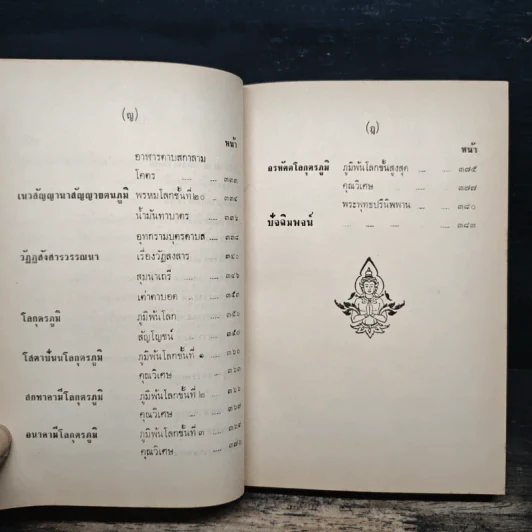 (ญ)
หน้า
อาฬารดาบสกาลาม
โคตร .... .... ๓๓๓
เนวสัญญานาสัญญายตนภูมิ พรหมโลกชั้นที่ ๒๐ .. ๓๓๔
น้ำมันทาบาตร .... ๓๓๖
อุททกรามบุตรดาบส .... ๓๓๘
วัฏฏสังสารวรรณนา เรื่องวัฏสงสาร .... ๓๔๐
สุมนาเถรี .... ๓๔๖
เต่าตาบอด .... ๓๕๐
โลกุตรภูมิ ภูมิพ้นโลก ....
สัญโญชน์ ....
โสดาบันนโลกุตรภูมิ ภูมิพ้นโลกชั้นที่ ๑
คุณวิเศษ ....
สกทาคามีโลกุตรภูมิ ภูมิพ้นโลกชั้นที่ ๒
คุณวิเศษ ....
อนาคามีโลกุตรภูมิ ภูมิพ้นโลกชั้นที่ ๓
คุณวิเศษ ....
(ฎ)
หน้า
อรหัตตโลกุตรภูมิ ภูมิพ้นโลกชั้นสูงสุด ... ... ๓๗๕
คุณวิเศษ .... ... ๓๗๗
พระพุทธปรินิพพาน ... ๓๘๐
ปัจฉิมพจน์ .... .... .... ... ๓๘๓